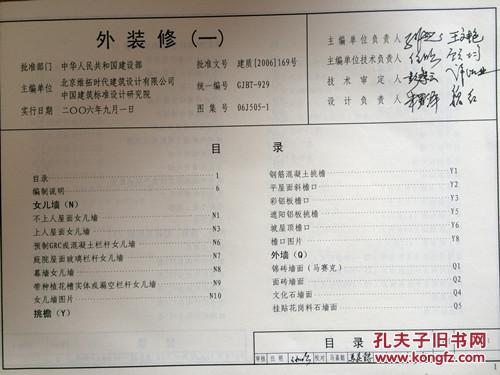 外装修(一)
批准部门 中华人民共和国建设部 批准文号 建质[2006]169号
主编单位 北京维拓时代建筑设计有限公司
中国建筑标准设计研究院 统一编号 GJBT-929
实行日期 二〇〇六年九月一日 图集号 06J505-1
主编单位负责人
主编单位技术负责人
技术审定人
设计负责人
目 录
目录 1
编制说明 6
女儿墙(N)
不上人屋面女儿墙 N1
上人屋面女儿墙 N3
预制GRC或混凝土栏杆女儿墙 N6
庭院屋面玻璃栏杆女儿墙 N7
幕墙女儿墙 N8
带种植花槽实体或漏空栏杆女儿墙 N9
女儿墙图片 N10
挑檐(Y)
钢筋混凝土挑檐 Y1
平屋面斜檐口 Y2
彩铝板檐口 Y3
遮阳铝板挑檐 Y5
坡屋顶檐口 Y6
檐口图片 Y8
外墙(Q)
锦砖墙面(马赛克) Q1
面砖墙面 Q2
文化石墙面 Q4
挂贴花岗料石墙面 Q5
目录
审核 任明 校对 马嘉懿
孔夫子旧书网
KONGFZ.COM